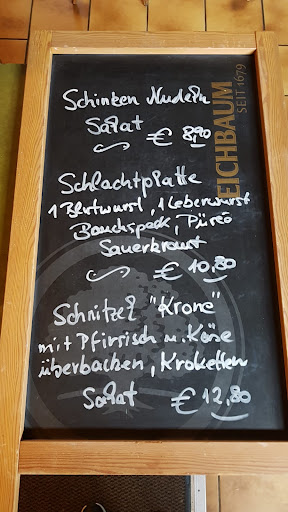 Schinken Nudeln
Salat € 8,90
Schlachtplatte
1 Blutwurst, 1 Leberwurst
Bauchspeck, Püree
Sauerkraut
€ 10,80
Schnitzel "Krone"
mit Pfirsisch u. Käse
überbacken, Kroketten
Salat € 12,80
EICHBAUM
SEIT 1679